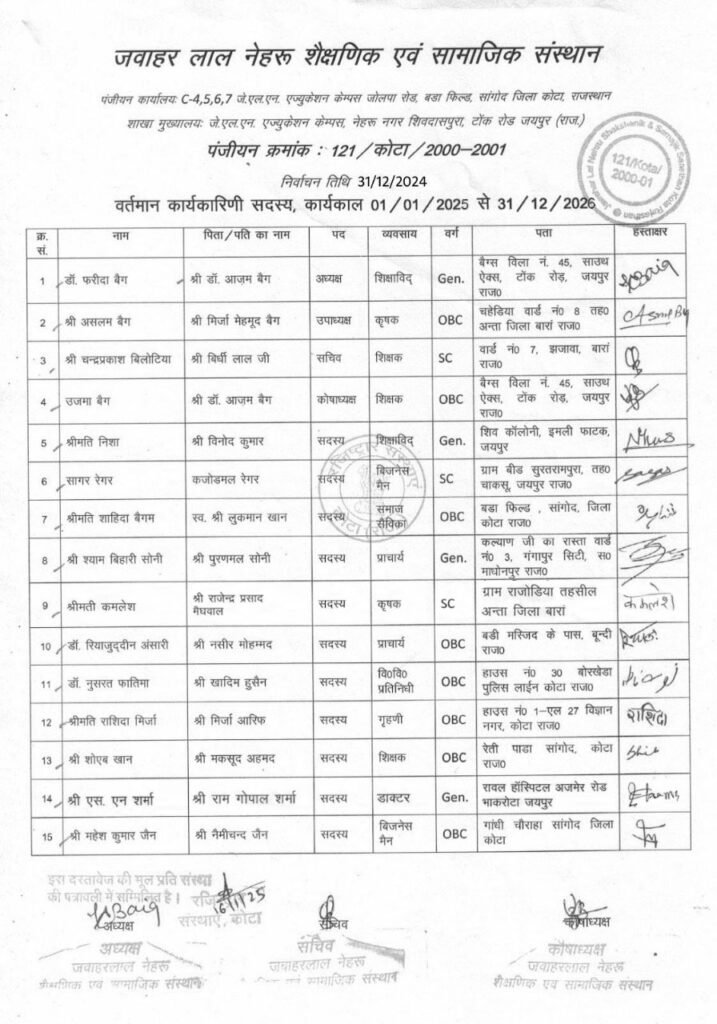 जवाहर लाल नेहरू शैक्षणिक एवं सामाजिक संस्थान
पंजीयन कार्यालयः C-4,5,6,7 जे.एल.एन. एज्युकेशन केम्पस जोलपा रोड, बडा फिल्ड, सांगोद जिला कोटा, राजस्थान
शाखा मुख्यालयः जे.एल.एन. एज्युकेशन केम्पस, नेहरू नगर शिवदासपुरा, टोंक रोड जयपुर (राज.)
पंजीयन क्रमांक : 121/कोटा/2000–2001
Jawahar Lal Nehru Shekshanik & Samajik Sansthan Kota Rajasthan
121/Kota/
2000-01
निर्वाचन तिथि 31/12/2024
वर्तमान कार्यकारिणी सदस्य, कार्यकाल 01/01/2025 से 31/12/2026
क्र. सं. नाम पिता/पति का नाम पद व्यवसाय वर्ग पता हस्ताक्षर
1 डॉ. फरीदा बैग श्री डॉ. आज़म बैग अध्यक्ष शिक्षाविद् Gen. बैग्स विला नं. 45, साउथ ऐक्स, टोंक रोड़, जयपुर राज0
2 श्री असलम बैग श्री मिर्जा मेहमूद बैग उपाध्यक्ष कृषक OBC चहेडिया वार्ड नं0 8 तह0 अन्ता जिला बारां राज0
3 श्री चन्द्रप्रकाश बिलोटिया श्री बिर्धी लाल जी सचिव शिक्षक SC वार्ड नं0 7, झजावा, बारां राज0
4 उजमा बैग श्री डॉ. आज़म बैग कोषाध्यक्ष शिक्षक OBC बैग्स विला नं. 45, साउथ ऐक्स, टोंक रोड़, जयपुर राज0
5 श्रीमति निशा श्री विनोद कुमार सदस्य शिक्षाविद् Gen. शिव कॉलोनी, इमली फाटक, जयपुर
6 सागर रेगर कजोडमल रेगर सदस्य बिजनेस मैन SC ग्राम बीड सुरतरामपुरा, तह0 चाकसू, जयपुर राज0
7 श्रीमति शाहिदा बैगम स्व. श्री लुकमान खान सदस्य समाज सेविका OBC बडा फिल्ड , सांगोद, जिला कोटा राज0
8 श्री श्याम बिहारी सोनी श्री पुरणमल सोनी सदस्य प्राचार्य Gen. कल्याण जी का रास्ता वार्ड नं0 3, गंगापुर सिटी, स0 माधोनपुर राज0
9 श्रीमती कमलेश श्री राजेन्द्र प्रसाद मेघवाल सदस्य कृषक SC ग्राम राजोडिया तहसील अन्ता जिला बारां कमलेश
10 डॉ. रियाजुद्दीन अंसारी श्री नसीर मोहम्मद सदस्य प्राचार्य OBC बडी मस्जिद के पास, बून्दी राज0
11 डॉ. नुसरत फातिमा श्री खादिम हुसैन सदस्य वि0वि0 प्रतिनिधी OBC हाउस नं0 30 बोरखेडा पुलिस लाईन कोटा राज0
12 श्रीमति राशिदा मिर्जा श्री मिर्जा आरिफ सदस्य गृहणी OBC हाउस नं0 1–एल 27 विज्ञान नगर, कोटा राज0 राशिदा
13 श्री शोएब खान श्री मकसूद अहमद सदस्य शिक्षक OBC रेती पाडा सांगोद, कोटा राज0
14 श्री एस. एन शर्मा श्री राम गोपाल शर्मा सदस्य डाक्टर Gen. रावल हॉस्पिटल अजमेर रोड भाकरोटा जयपुर
15 श्री महेश कुमार जैन श्री नैमीचन्द जैन सदस्य बिजनेस मैन OBC गांधी चौराहा सांगोद जिला कोटा
इस दस्तावेज की मूल प्रति संस्था
की पत्रावली में सम्मिलित है।
16/1/25
संस्थाएं, कोटा
अध्यक्ष सचिव कोषाध्यक्ष
अध्यक्ष सचिव कौषाध्यक्ष
जवाहरलाल नेहरू जवाहरलाल नेहरू जवाहरलाल नेहरू
शैक्षणिक एवं सामाजिक संस्थान एवं सामाजिक संस्थान शैक्षणिक एवं सामाजिक संस्थान